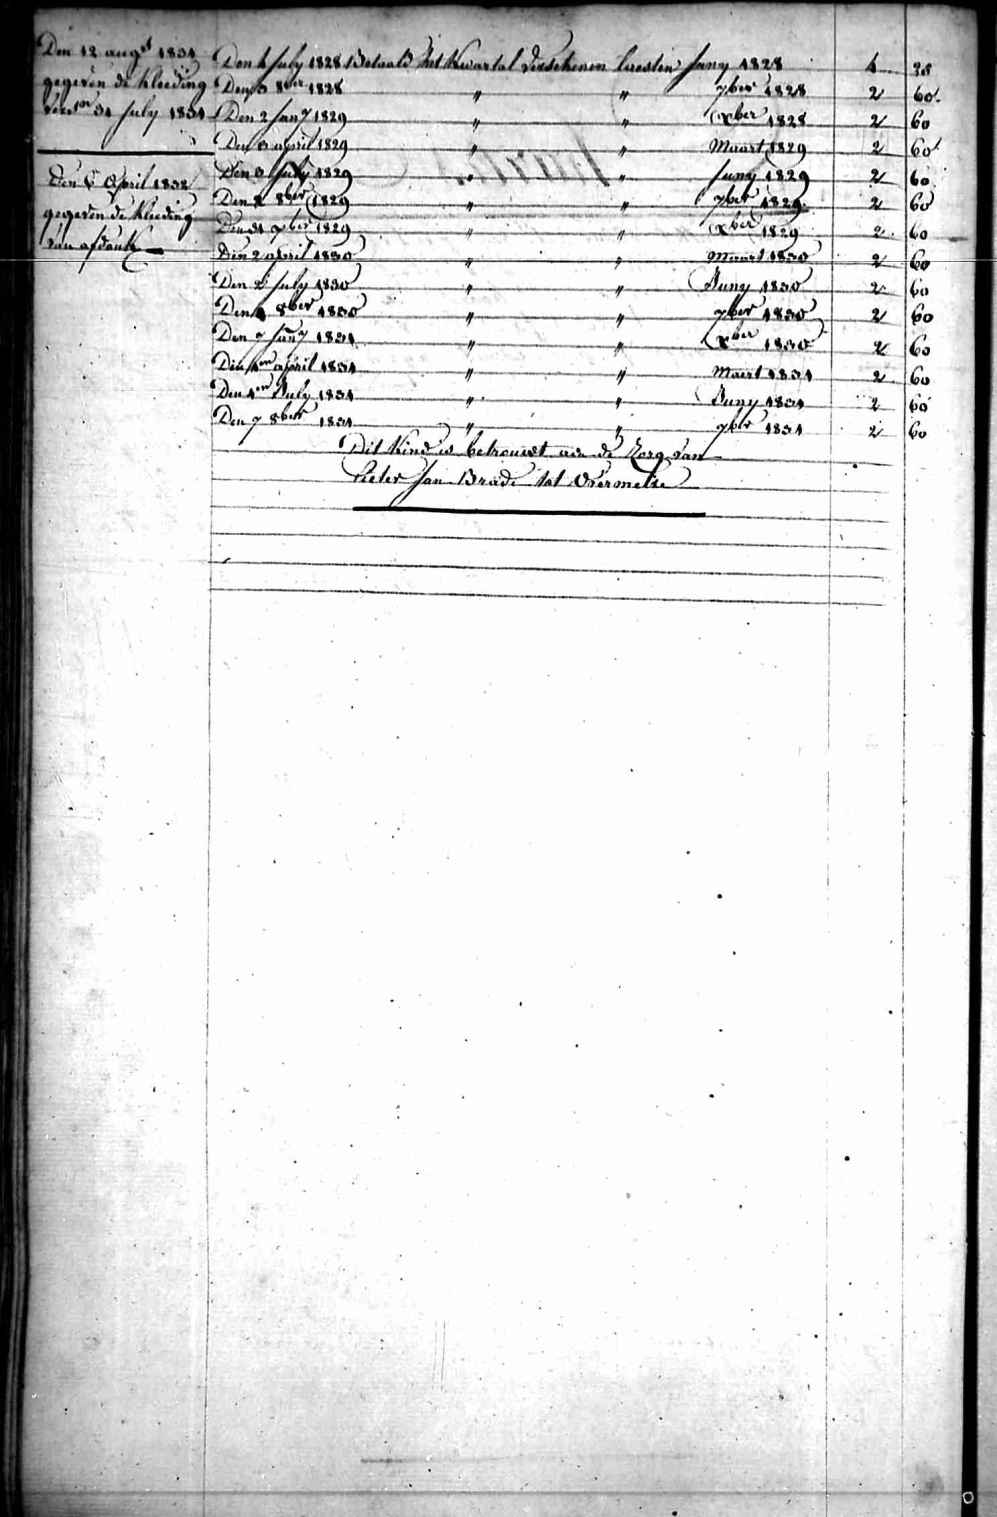 Den 12 augst 1831
gegeven de kleeding
31 July 1831
Den 6 April 1832
gegeven de kleeding
van afdank
Den 1 July 1828 Betaald het kwartal verschenen laesten Juny 1828 4 38
Den 3 8ber 1828 " " 7ber 1828 2 60
Den 2 Jany 1829 " " Xber 1828 2 60
Den 3 april 1829 " " Maart 1829 2 60
Den 3 July 1829 " " Juny 1829 2 60
Den 2 8ber 1829 " " 7ber 1829 2 60
Den 31 ber 1829 " " Xber 1829 2 60
Den 2 april 1830 " " Maart 1830 2 60
Den 2 July 1830 " " Juny 1830 2 60
Den 8ber 1830 " " 7ber 1830 2 60
Den 7 Jany 1831 " " Xber 1830 2 60
Den 1en april 1831 " " Maert 1831 2 60
Den 1en July 1831 " " Juny 1831 2 60
Den 7 8ber 1831 " " 7ber 1831 2 60
Dit kind is betrouwt aen de Zorg van
Pieter Jan Brade tot Overmeire